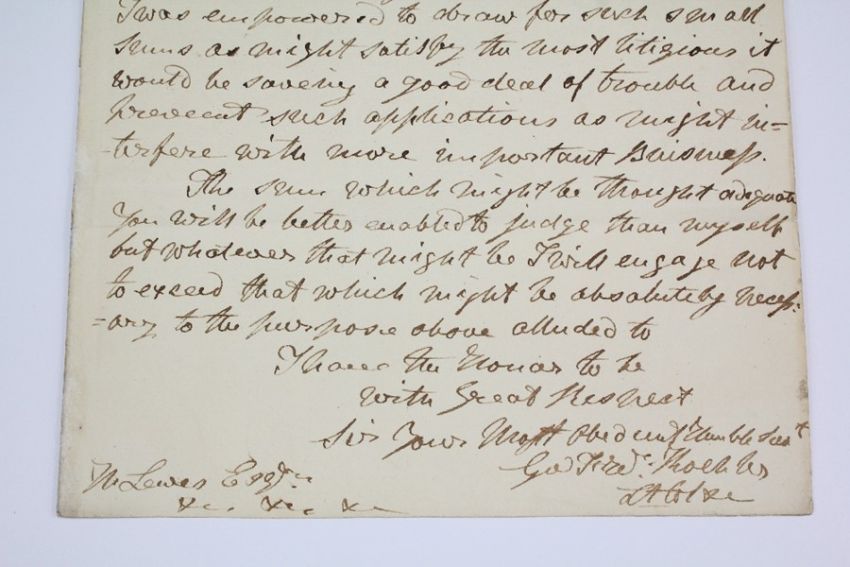 I was empowered to draw for such small
sums as might satisfy the most litigious it
would be saveing a good deal of trouble and
prevent such applications as might in=
-terfere with more important Buisness.
The sum which might be thought adequate
you will be better enabled to judge than myself
but whatever that might be I will engage not
to exceed that which might be absolutely necess:
=ary to the purpose above alluded to
I have the Honor to be
with Great Respect
Sir Your Most Obedient Humble Servt
Geo Fredk Koehler
Lt Col
M Lewis Esqr
&c. &c. &c